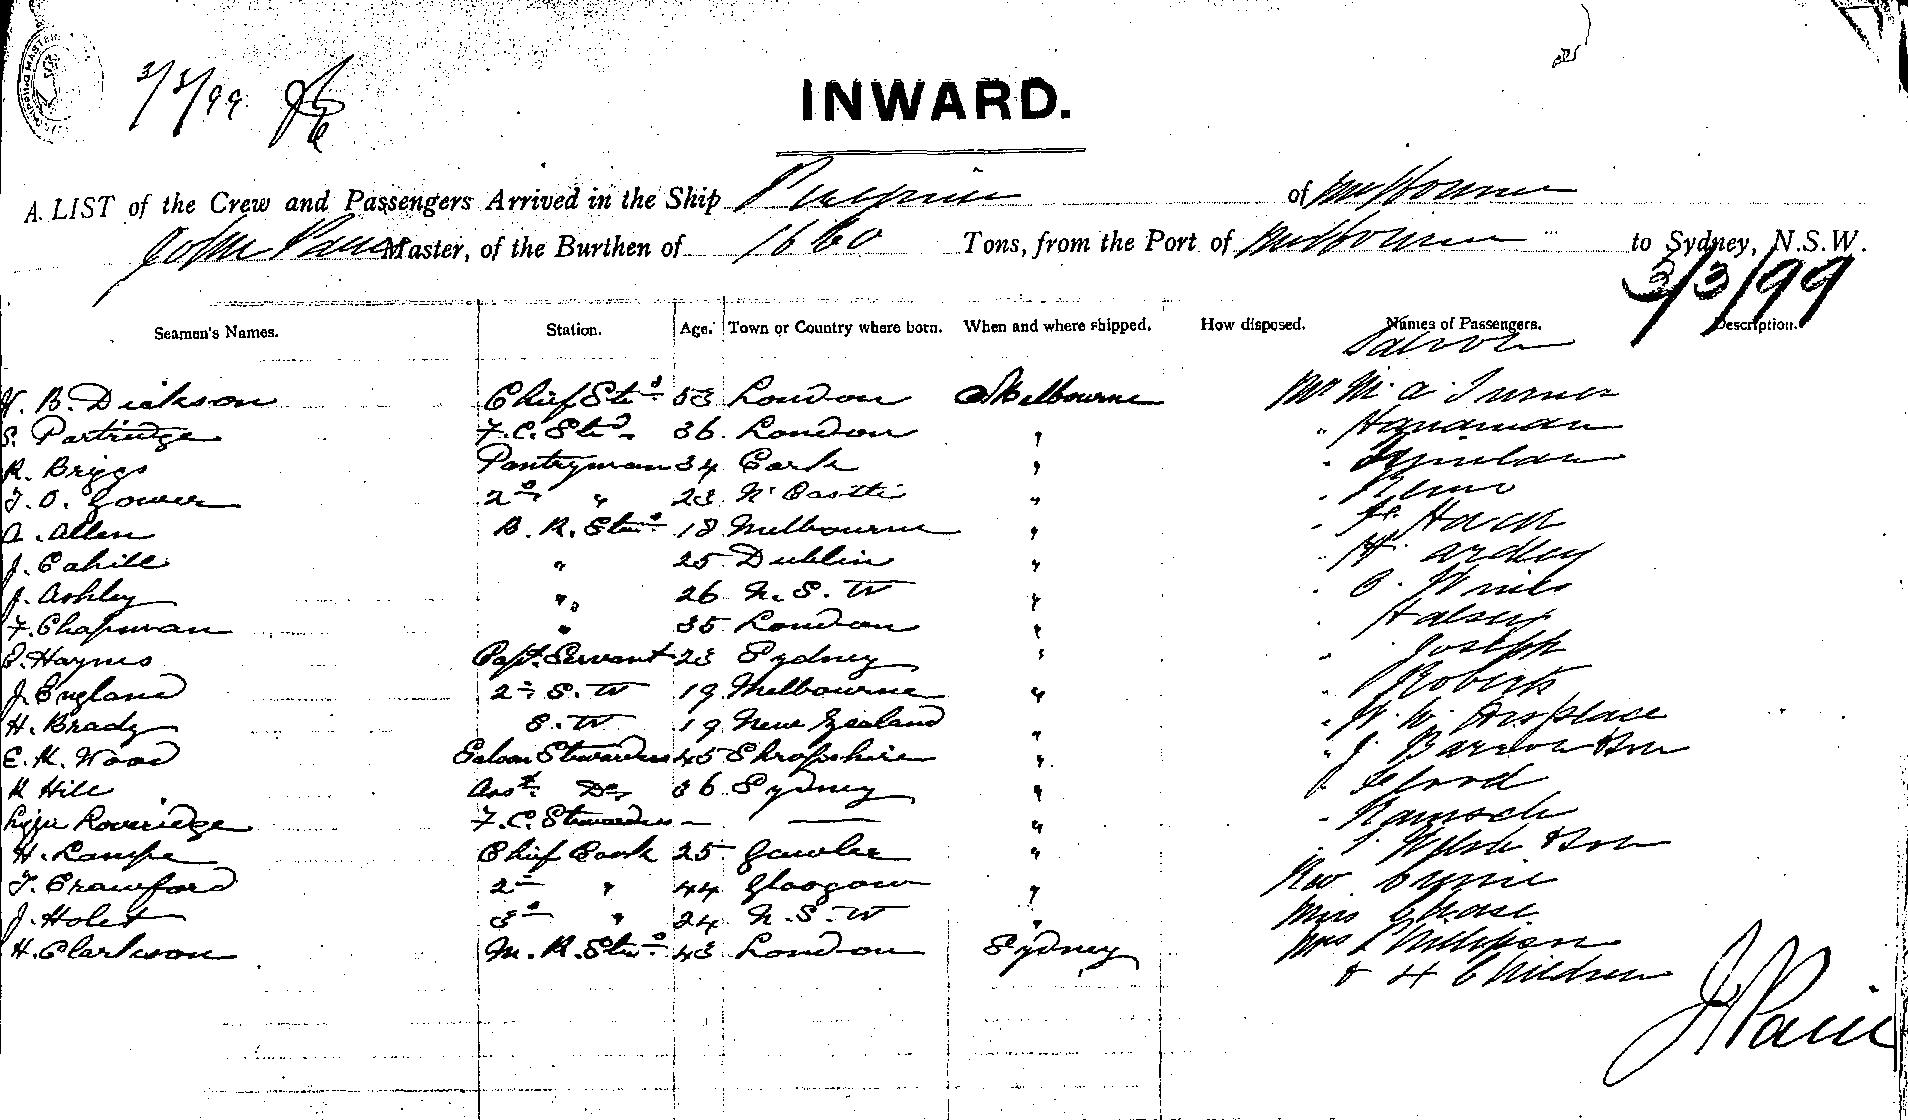 3/3/99
INWARD.
A LIST of the Crew and Passengers Arrived in the Ship Peregrine of Melbourne
John Pain Master, of the Burthen of 1660 Tons, from the Port of Melbourne to Sydney, N.S.W.
3/3/99
Seamen's Names. Station. Age. Town or Country where born. When and where shipped. How disposed. Names of Passengers. Description.
Saloon
H. B. Dickson Chief Std 53 London Melbourne Mr M. A. Turner
S. Partridge F.C. Std 36 London " "
R. Briggs Pantryman 34 Cork " "
T. O. Gower 2nd " 23 N Castle " "
A. Allen B. R. Std 18 Melbourne " "
J. Cahill " 25 Dublin " " H. Ardley
J. Ashley " 26 N. S. W " "
F. Chapman " 35 London " " Halsey
E. Haynes Capt. Servant 23 Sydney " " Joseph
J. England 2nd S. W 19 Melbourne " " Roberts
H. Brady S. W 19 New Zealand " " W. W.
E. M. Wood Saloon Stewardess 45 Shropshire " " J. Barron & Son
R Hill Asst Do 36 Sydney "
Lizzie Loveridge F.C. Stewardess — — " "
H. Lampe Chief Cook 25 Gawler " & Son
T. Crawford 2nd " 44 Glasgow " Rev
J. Holst 3rd " 24 N. S. W " Miss Chase
H. Clarkson M. R. Std 43 London Sydney Mrs
& 4 Children
J Pain